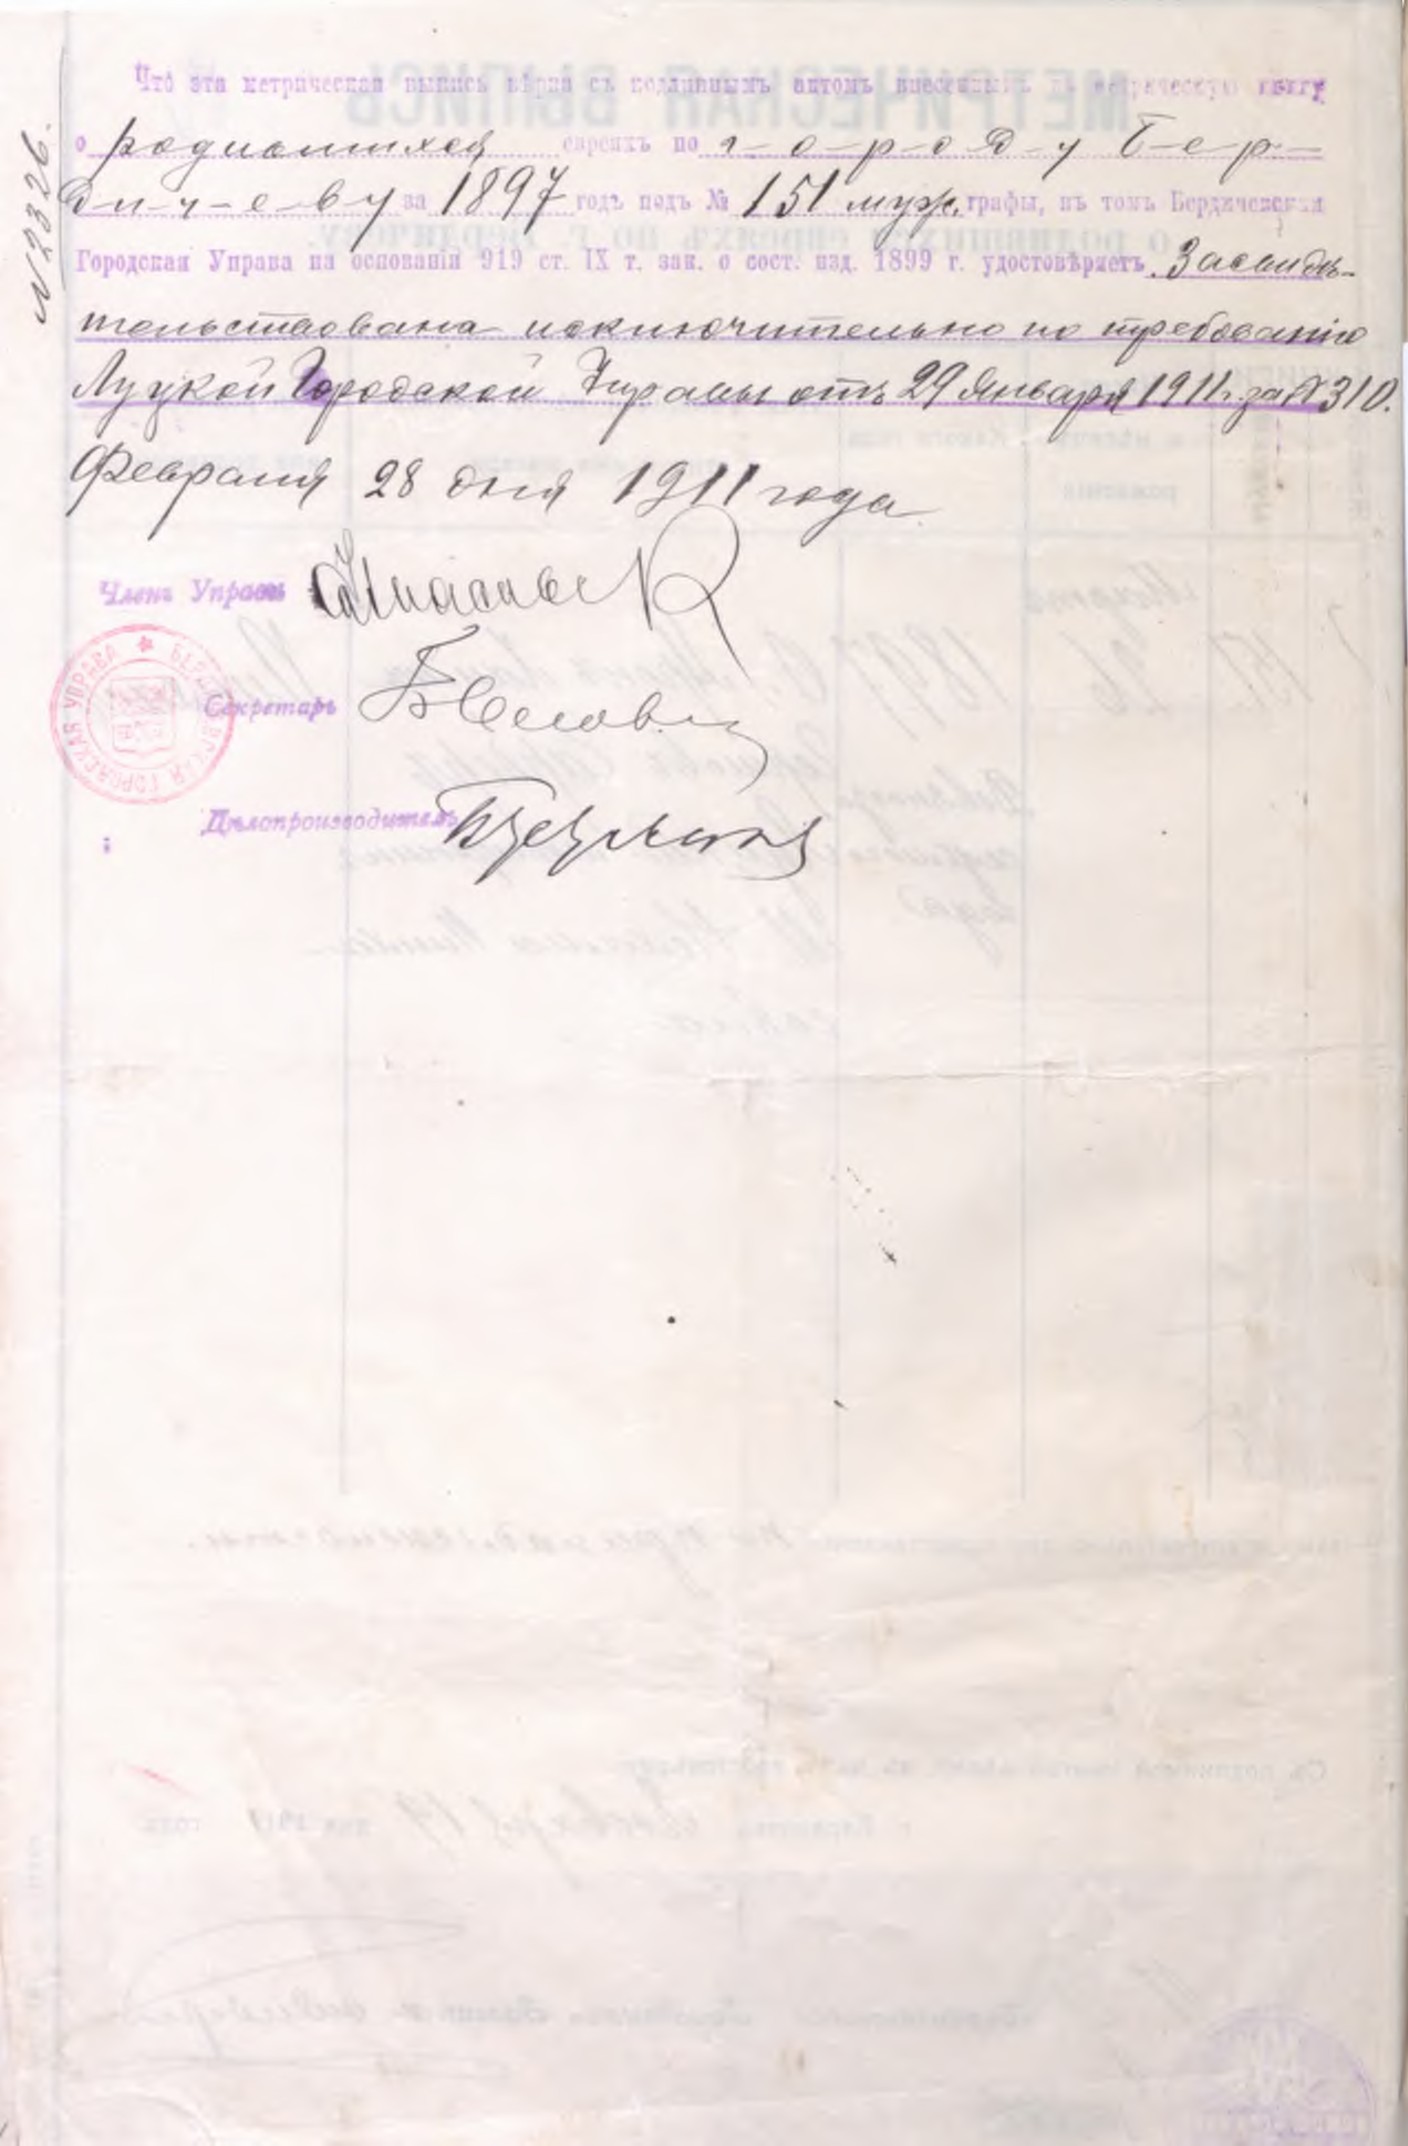 № 2326.
Что эта метрическая выпись вѣрна съ подлиннымъ актомъ внесеннымъ въ метрическую книгу
о родившихся евреяхъ по г-о-р-о-д-у Б-е-р-
д-и-ч-е-в-у за 1897 годъ подъ № 151 муж. графы, въ томъ Бердичевская
Городская Управа на основаніи 919 ст. IX т. зак. о сост. изд. 1899 г. удостовѣряетъ. Засвидѣ-
тельствована исключительно по требованію
Луцкой Городской Управы отъ 29 Января 1911 г. за № 310.
Февраля 28 дня 1911 года
Членъ Управы
БЕРДИЧЕВСКАЯ ГОРОДСКАЯ УПРАВА
Секретарь
Дѣлопроизводитель